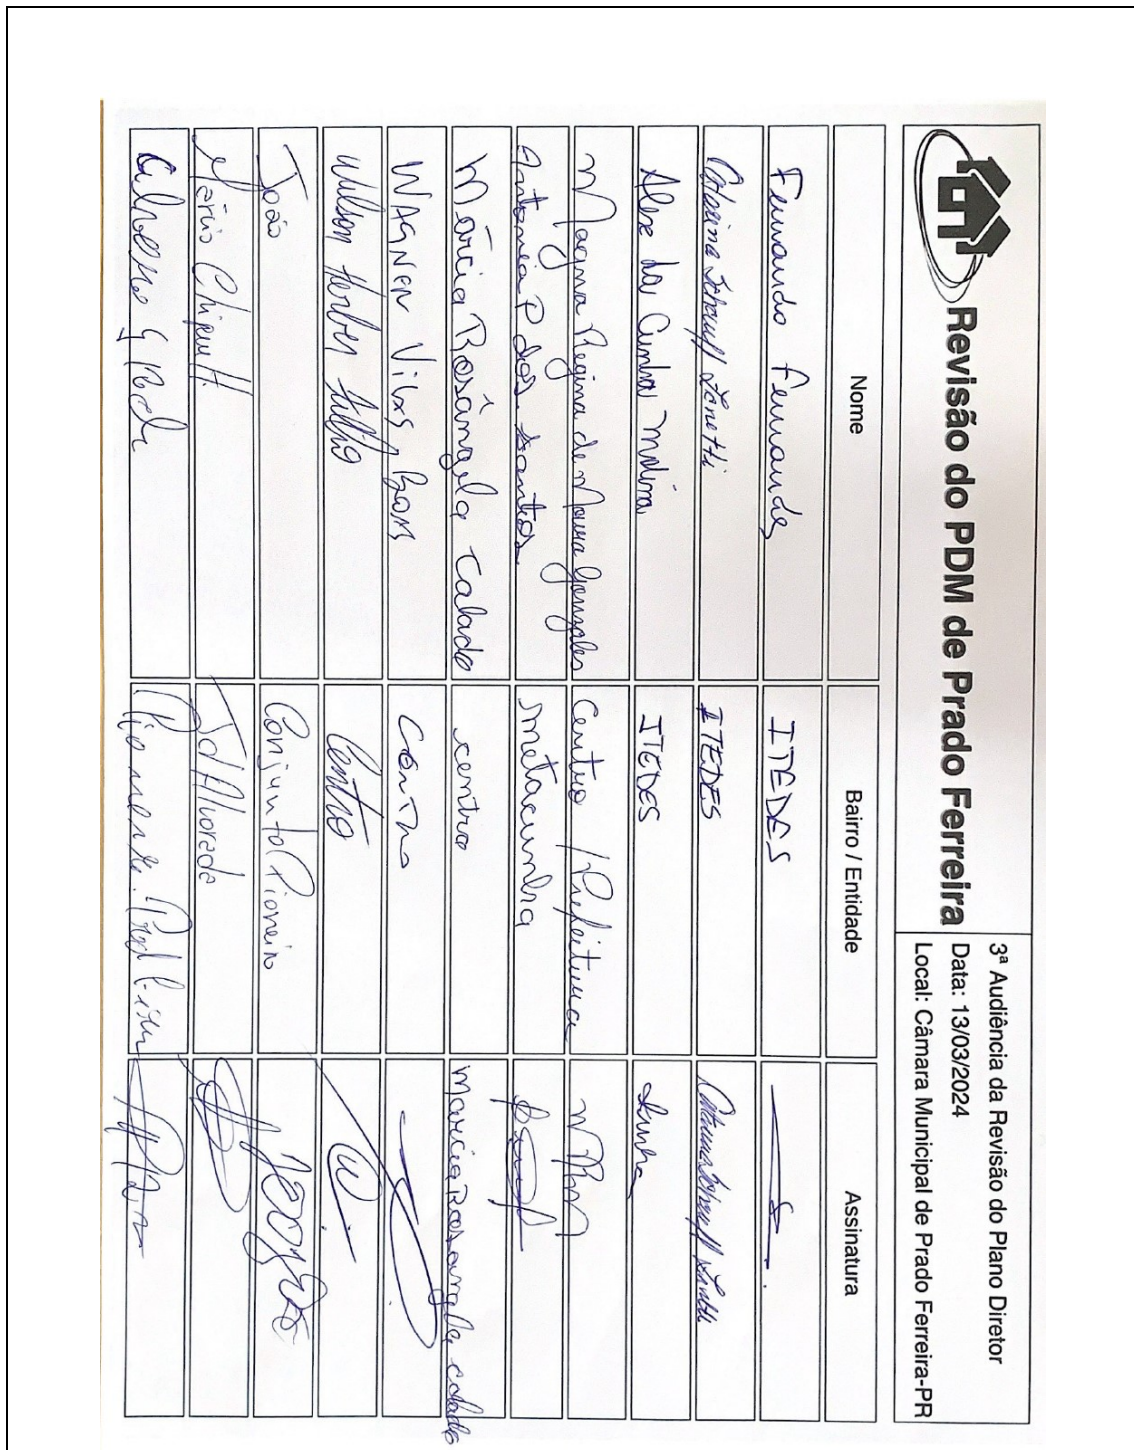 Revisão do PDM de Prado Ferreira
3ª Audiência da Revisão do Plano Diretor
Data: 13/03/2024
Local: Câmara Municipal de Prado Ferreira-PR
Nome Bairro / Entidade Assinatura
Fernando Fernandes ITEDES
Catarina Schauff Zanetti ITEDES
Alex da Cunha Molina ITEDES Cunha
Magna Regina de Moura Gonzales Centro / Prefeitura
Antonia P dos Santos
Márcia Rosângela Calado centro Marcia Rosangela calado
WAGNER Centro
Wilson Filho Centro
João Conjunto Pioneiro
Mário Jd Alvorada